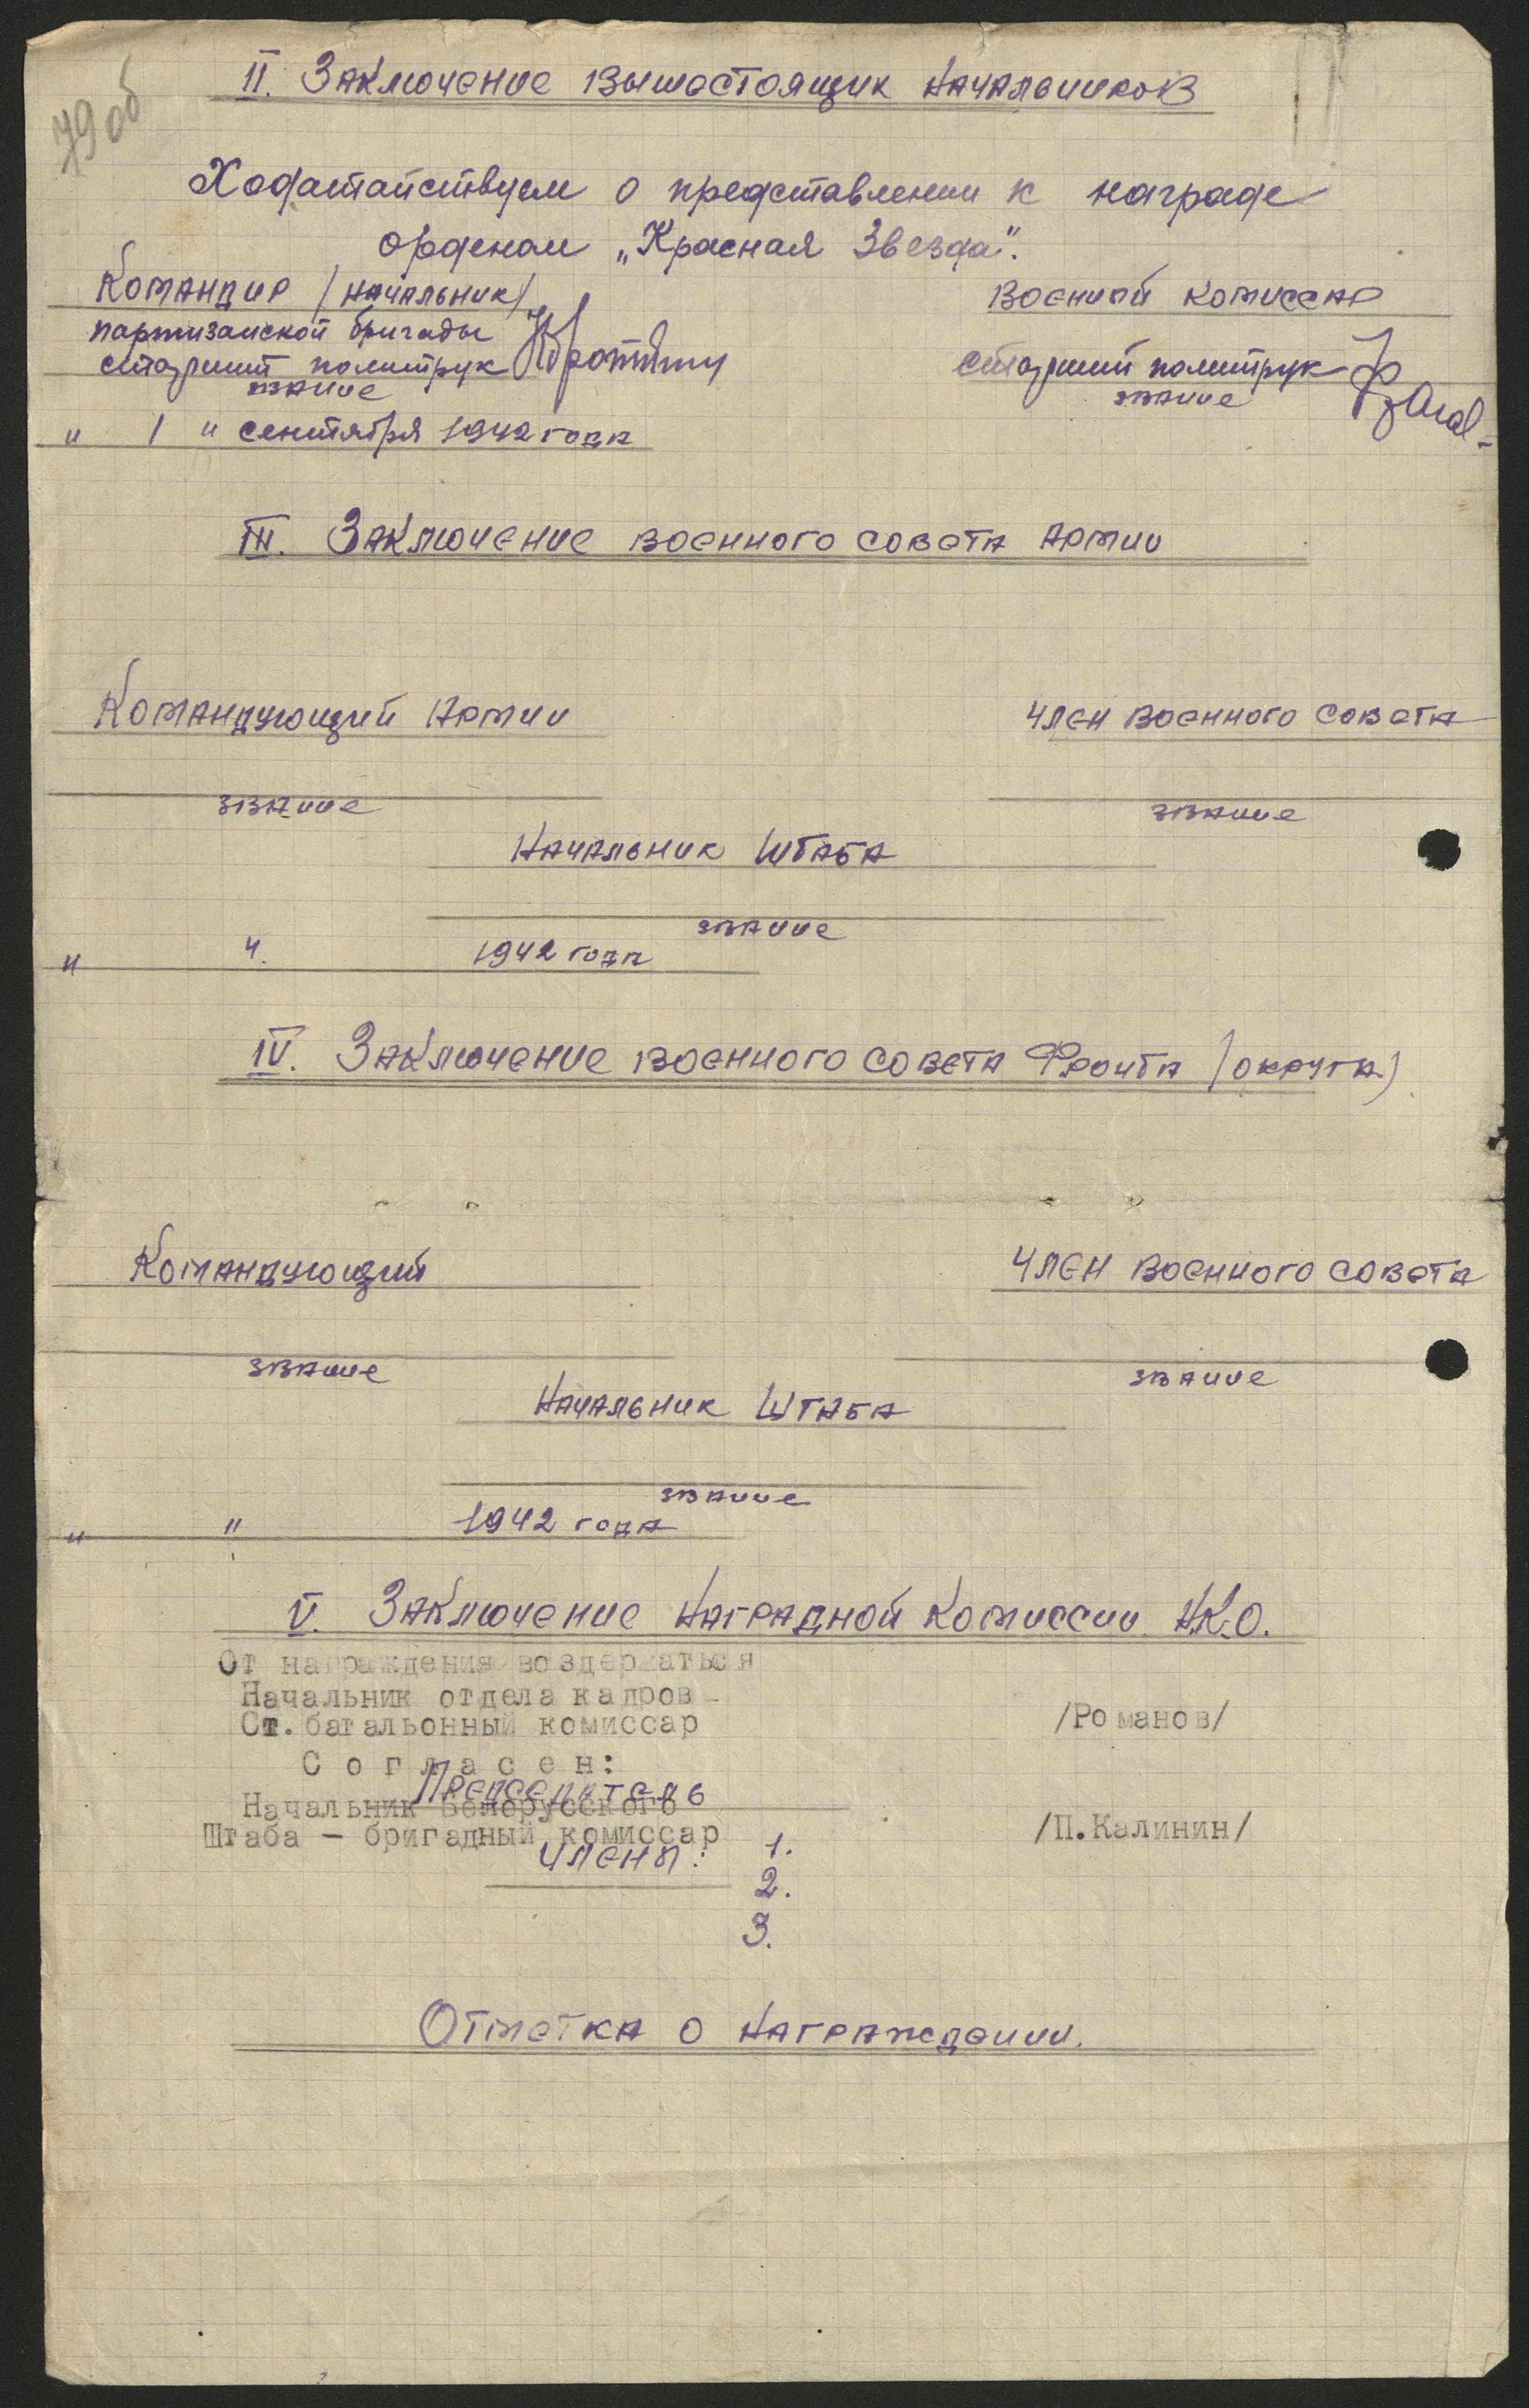 79 об
II. Заключение вышестоящих начальников
Ходатайствуем о представлении к награде
орденом „Красная Звезда".
Командир /начальник/ Военный комиссар
партизанской бригады
старший политрук старший политрук
звание звание
" 1 " сентября 1942 года
III. Заключение военного совета Армии
Командующий Армии Член военного совета
звание звание
Начальник Штаба
звание
" " 1942 года
IV. Заключение военного совета Фронта /округа)
Командующий Член военного совета
звание звание
Начальник Штаба
звание
" " 1942 года
V. Заключение Наградной Комиссии Н.К.О.
От награждения воздержаться
Начальник отдела кадров
Ст. батальонный комиссар /Романов/
Согласен:
Председатель
Начальник Белорусского
Штаба – бригадный комиссар /П.Калинин/
Члены: 1.
2.
3.
Отметка о награждении.